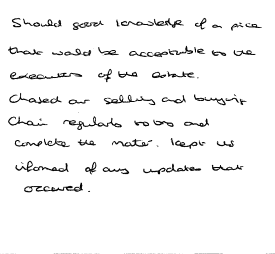 Should good knowledge of a price
that would be acceptable to the
executors of the estate.
Chased our selling and buying
Chain regularly to try and
complete the matter. Kept us
informed of any updates that
occurred.